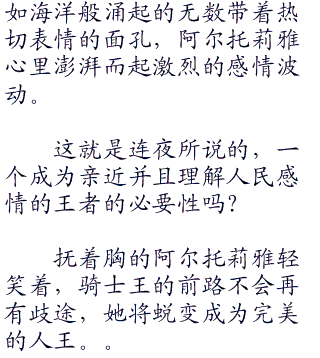 如海洋般涌起的无数带着热
切表情的面孔，阿尔托莉雅
心里澎湃而起激烈的感情波
动。
这就是连夜所说的，一
个成为亲近并且理解人民感
情的王者的必要性吗？
抚着胸的阿尔托莉雅轻
笑着，骑士王的前路不会再
有歧途，她将蜕变成为完美
的人王。。